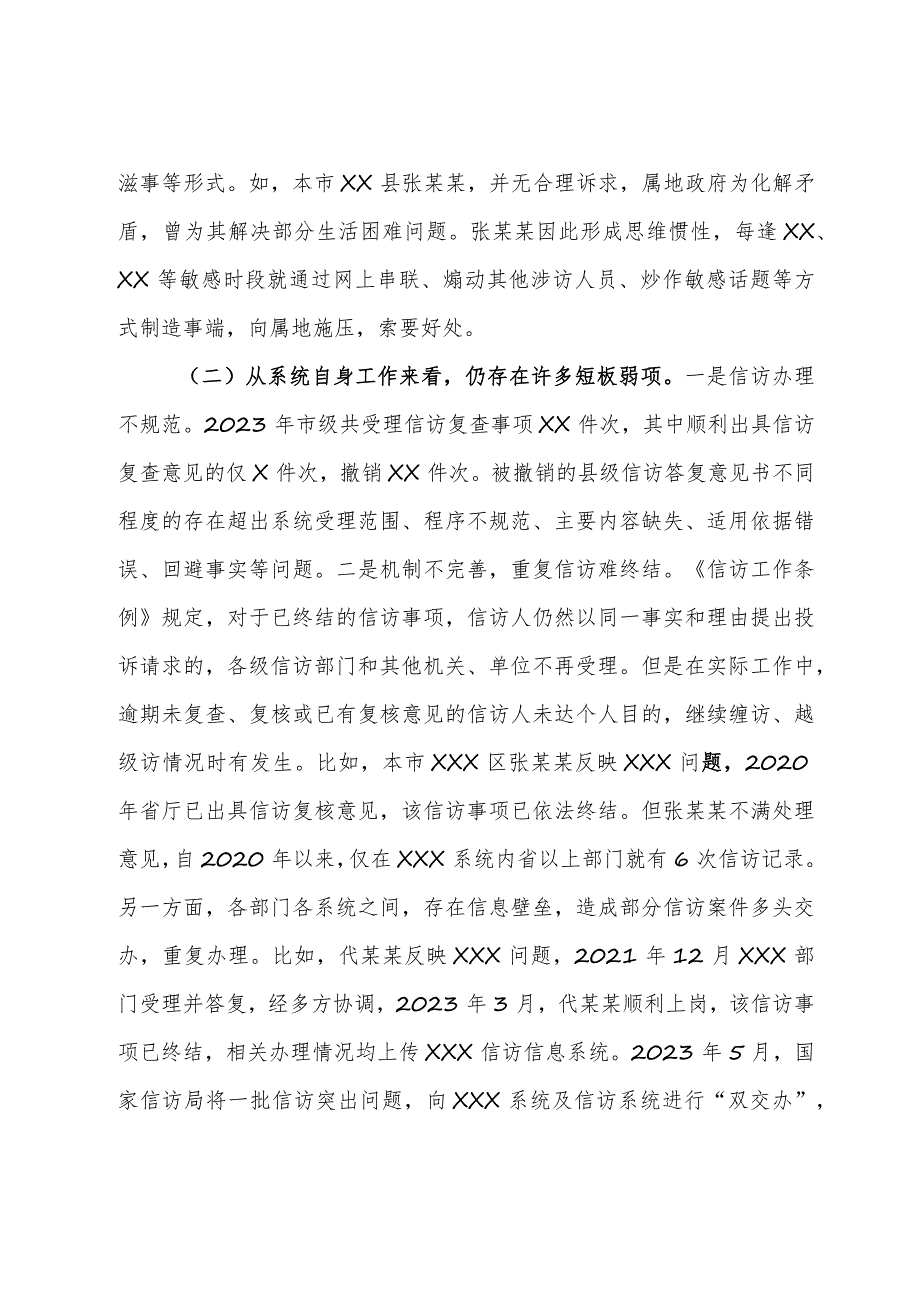 滋事等形式。如，本市 XX 县张某某，并无合理诉求，属地政府为化解矛
盾，曾为其解决部分生活困难问题。张某某因此形成思维惯性，每逢 XX、
XX 等敏感时段就通过网上串联、煽动其他涉访人员、炒作敏感话题等方
式制造事端，向属地施压，索要好处。
（二）从系统自身工作来看，仍存在许多短板弱项。一是信访办理
不规范。2023 年市级共受理信访复查事项 XX 件次，其中顺利出具信访
复查意见的仅 X 件次，撤销 XX 件次。被撤销的县级信访答复意见书不同
程度的存在超出系统受理范围、程序不规范、主要内容缺失、适用依据错
误、回避事实等问题。二是机制不完善，重复信访难终结。《信访工作条
例》规定，对于已终结的信访事项，信访人仍然以同一事实和理由提出投
诉请求的，各级信访部门和其他机关、单位不再受理。但是在实际工作中，
逾期未复查、复核或已有复核意见的信访人未达个人目的，继续缠访、越
级访情况时有发生。比如，本市 XXX 区张某某反映 XXX 问题，2020
年省厅已出具信访复核意见，该信访事项已依法终结。但张某某不满处理
意见，自 2020 年以来，仅在 XXX 系统内省以上部门就有 6 次信访记录。
另一方面，各部门各系统之间，存在信息壁垒，造成部分信访案件多头交
办，重复办理。比如，代某某反映 XXX 问题，2021 年 12 月 XXX 部
门受理并答复，经多方协调，2023 年 3 月，代某某顺利上岗，该信访事
项已终结，相关办理情况均上传 XXX 信访信息系统。2023 年 5 月，国
家信访局将一批信访突出问题，向 XXX 系统及信访系统进行“双交办”，